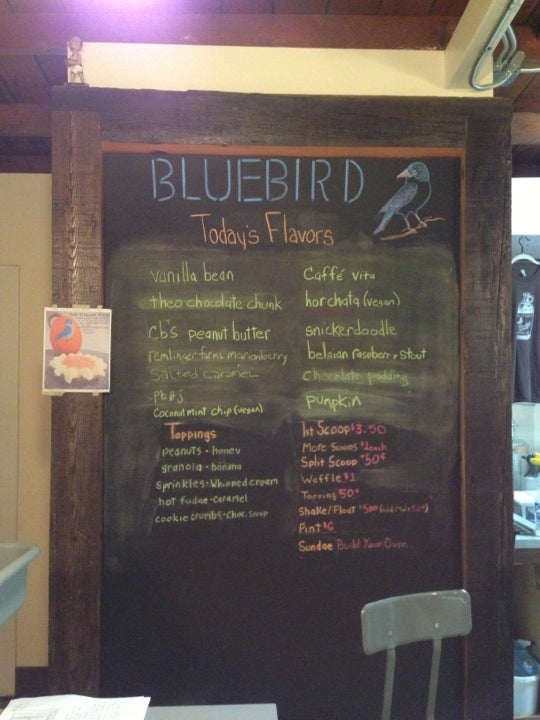 BLUEBIRD
Today's Flavors
vanilla bean
theo chocolate chunk
CB's peanut butter
remlinger farms marionberry
Salted Caramel
pb&j
Coconut mint chip (vegan)
Caffé vita
horchata (vegan)
snickerdoodle
belgian raspberry stout
Chocolate pudding
pumpkin
Toppings
peanuts • honey
granola • banana
sprinkles • Whipped cream
hot fudge • Caramel
cookie crumbs • Choc. Syrup
1st Scoop $3.50
More Scoops $1 each
Split Scoop 50¢
Waffle $1
Topping 50¢
Shake/Float $5.00
Pint $6
Sundae Build Your Own